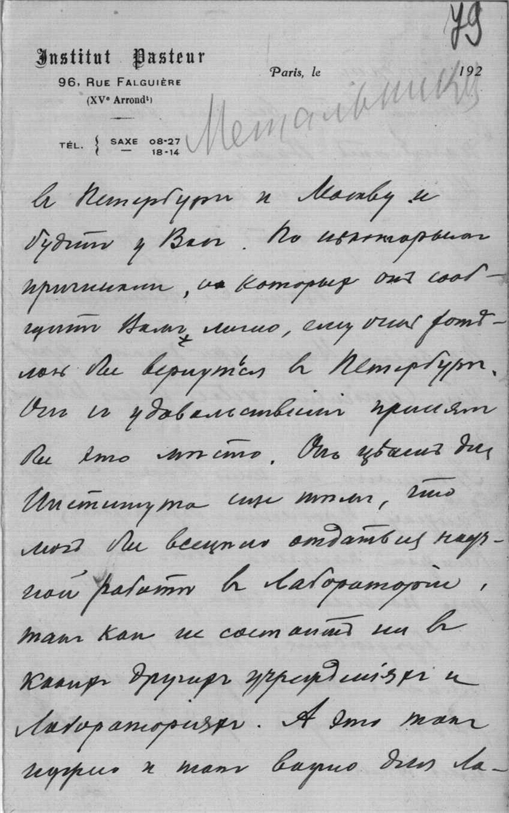 79
Institut Pasteur
96, Rue Falguière
(XVe Arrondt)
Paris, le 192
TÉL. { SAXE 08-27
— 18-14
Метальников
въ Петербургъ и Москву и
будетъ у Васъ. По некоторымъ
причинамъ, о которыхъ онъ сооб-
щитъ Вамъ лично, ему
бы вернуться въ Петербургъ.
Онъ съ удовольствиемъ принялъ
бы это место. Онъ ценен для
Института еще темъ, что
могъ бы всецело отдаться науч-
ной работе въ Лабораторіи,
такъ какъ не состоитъ ни въ
какихъ другихъ учрежденіяхъ и
Лабораторіяхъ. А это такъ
нужно и такъ важно для Ла-